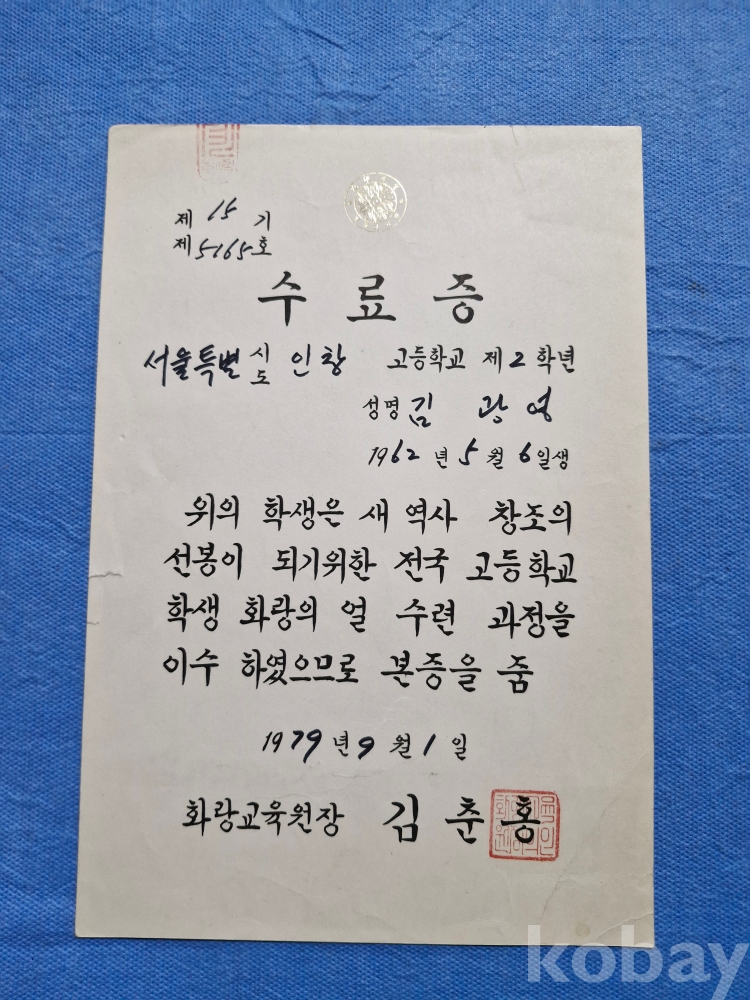 제 15 기
제 5165 호
수료증
서울특별 시 도 인창 고등학교 제 2 학년
성명 김 광 영
1962 년 5 월 6 일생
위의 학생은 새 역사 창조의
선봉이 되기위한 전국 고등학교
학생 화랑의 얼 수련 과정을
이수 하였으므로 본증을 줌
1979 년 9 월 1 일
화랑교육원장 김 춘 홍
kobay